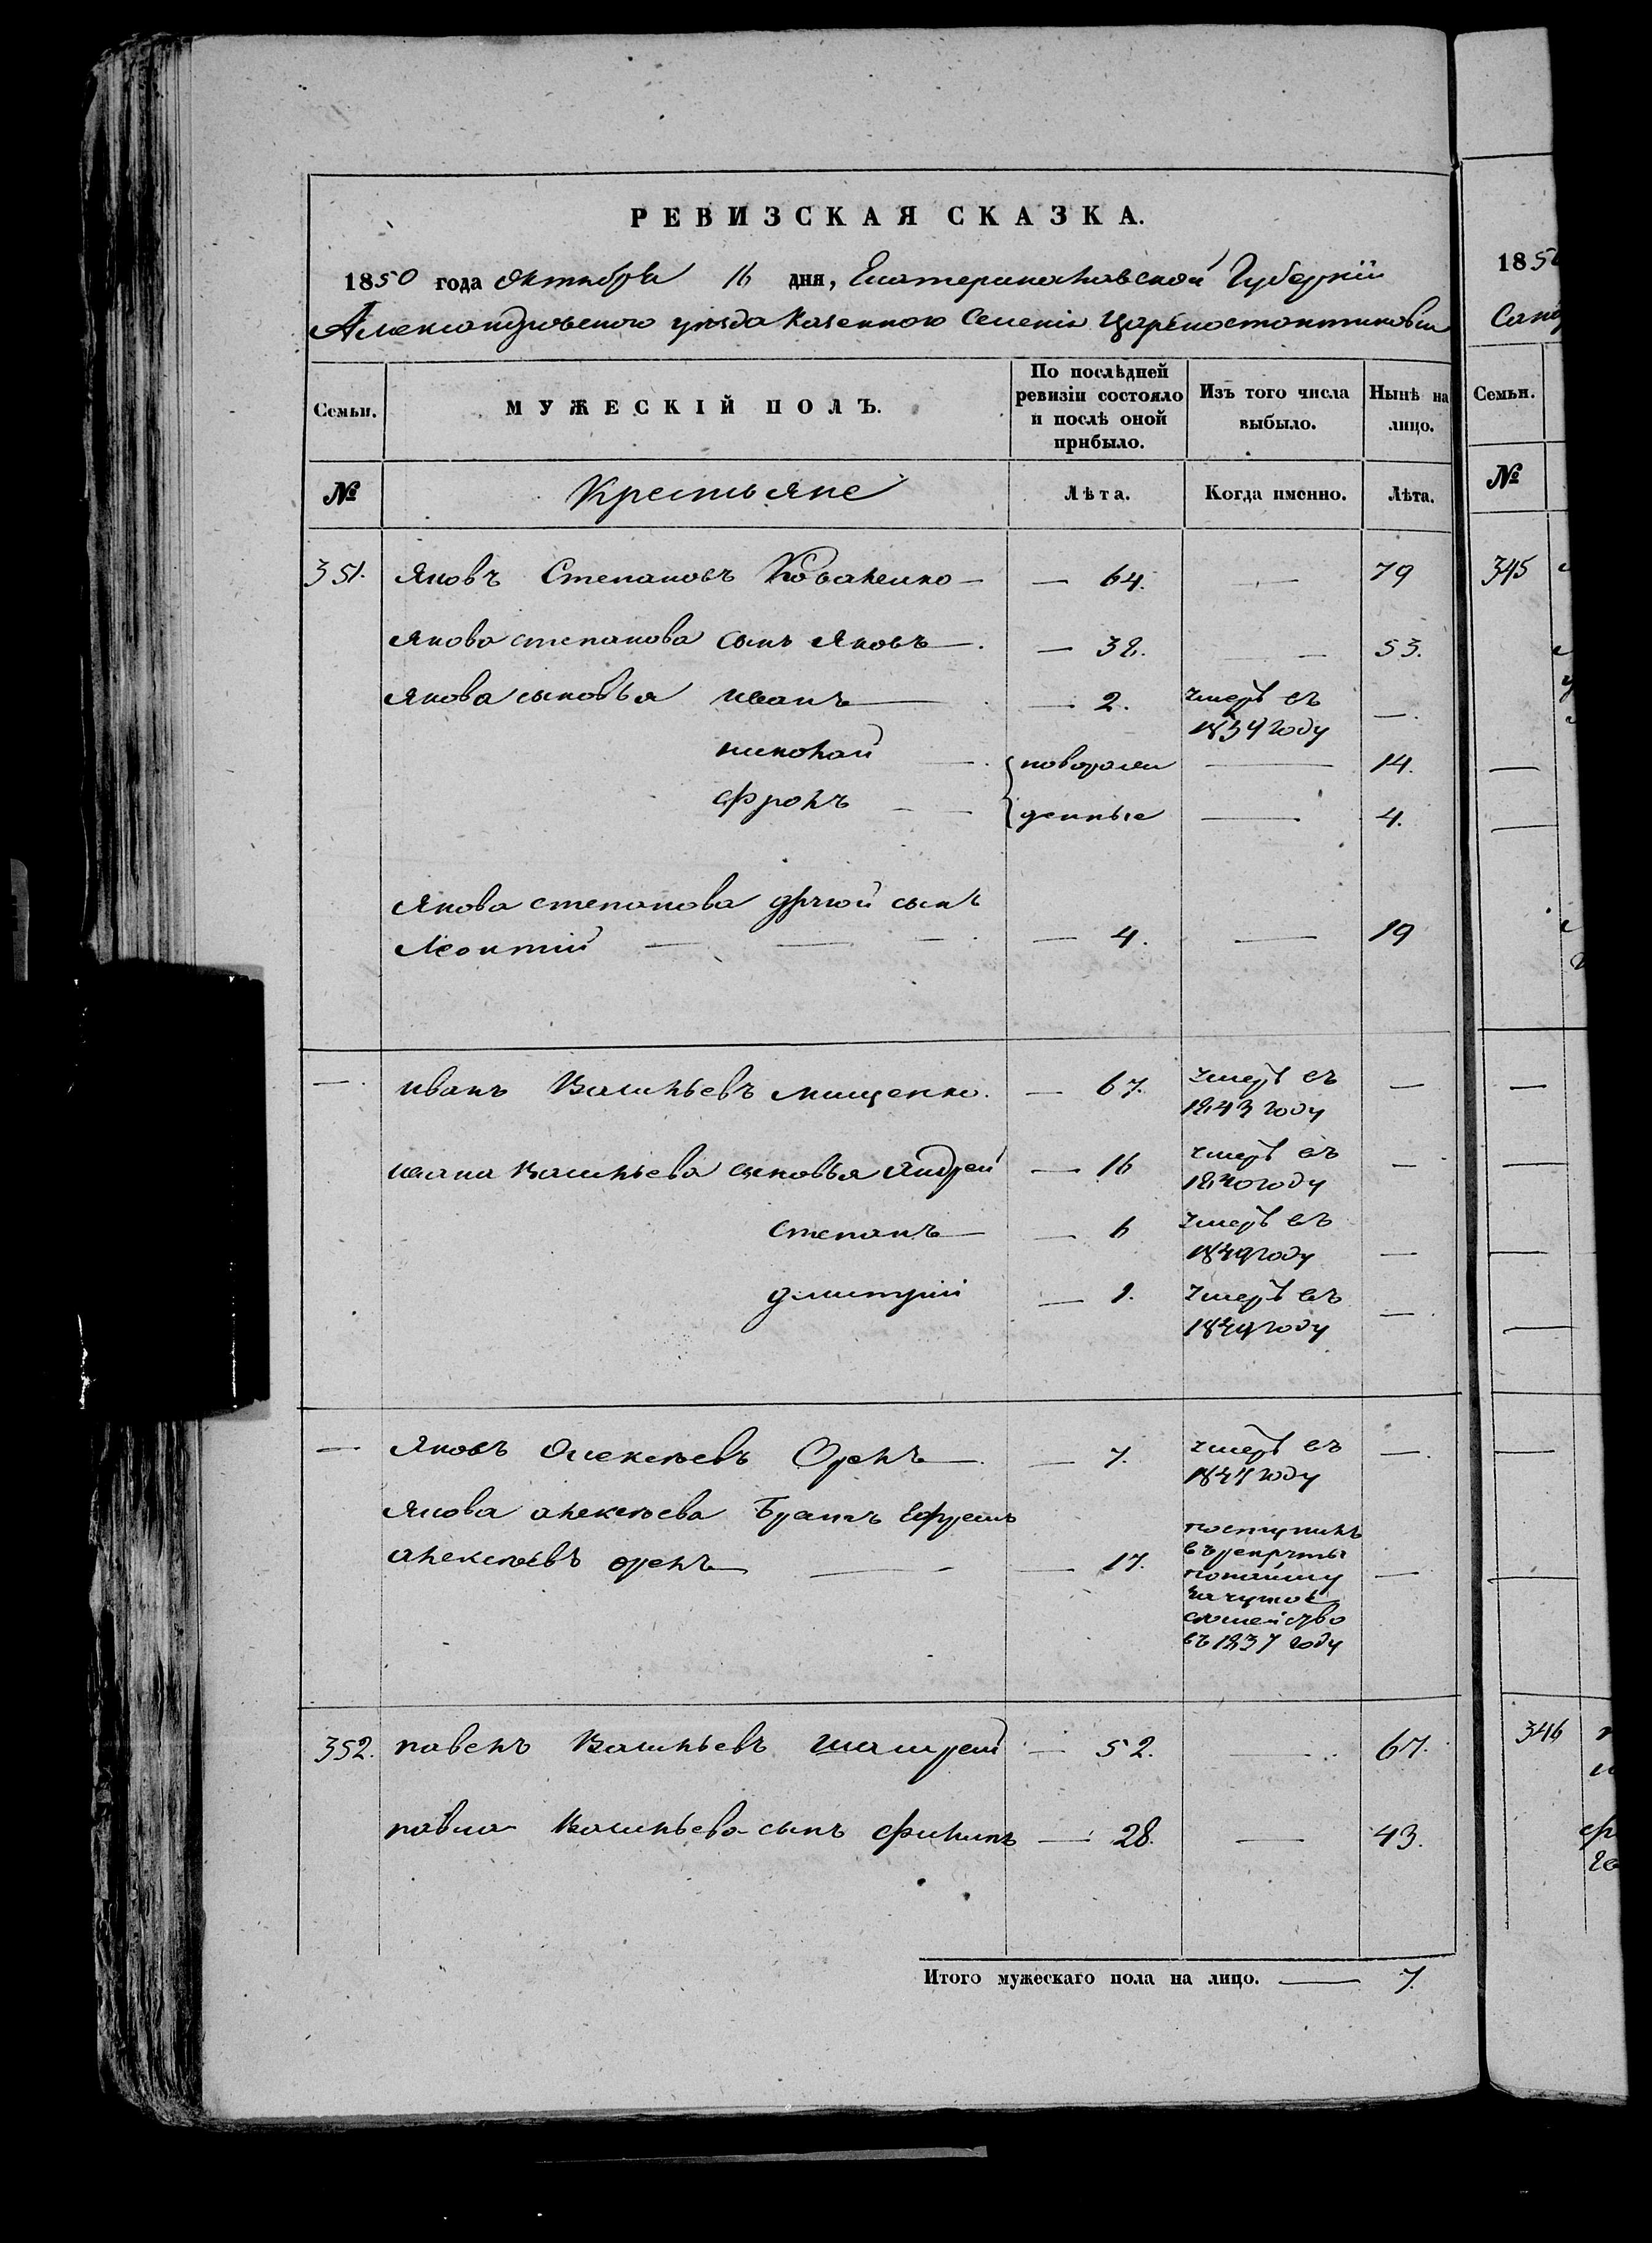 РЕВИЗСКАЯ СКАЗКА.
1850 года Октября 16 дня, Екатеринославской Губерніи
Александровского уѣзда Казенного Селенія Царевостонтиновки
Семьи. МУЖЕСКІЙ ПОЛЪ. По послѣдней ревизіи состояло и послѣ оной прибыло. Изъ того числа выбыло. Нынѣ на лицо.
№ Крестьяне Лѣта. Когда именно. Лѣта.
351. Яковъ Степановъ Коваленко — — 64. — 79
Якова степанова сынъ Яковъ — — 38. — 53.
Якова сыновья иванъ — — 2. умеръ въ 1839 году —
николай — новорож — 14.
фролъ — денные — 4.
Якова степанова другой сынъ
Леонтій — — — — 4. — 19
— иванъ Васильевъ мищенко. — 67. умеръ въ 1843 году —
ивана васильева сыновья Андрей — 16 умеръ въ 1840 году —
степанъ — — 6 умеръ въ 1849 году —
дмитрій — 1. умеръ въ 1849 году —
— Яковъ Алексѣевъ Орелъ — — 7. умеръ въ 1847 году —
Якова алексѣева Братъ Ефремъ
алексѣевъ орелъ — — 17. поступилъ
въ рекруты
понайму
за чужое
семейство
въ 1837 году —
352. павелъ Васильевъ — 52. — 67.
павла Васильева сынъ филипъ — 28. — 43.
Итого мужескаго пола на лицо. — 7.
185
Семьи.
№
345
346